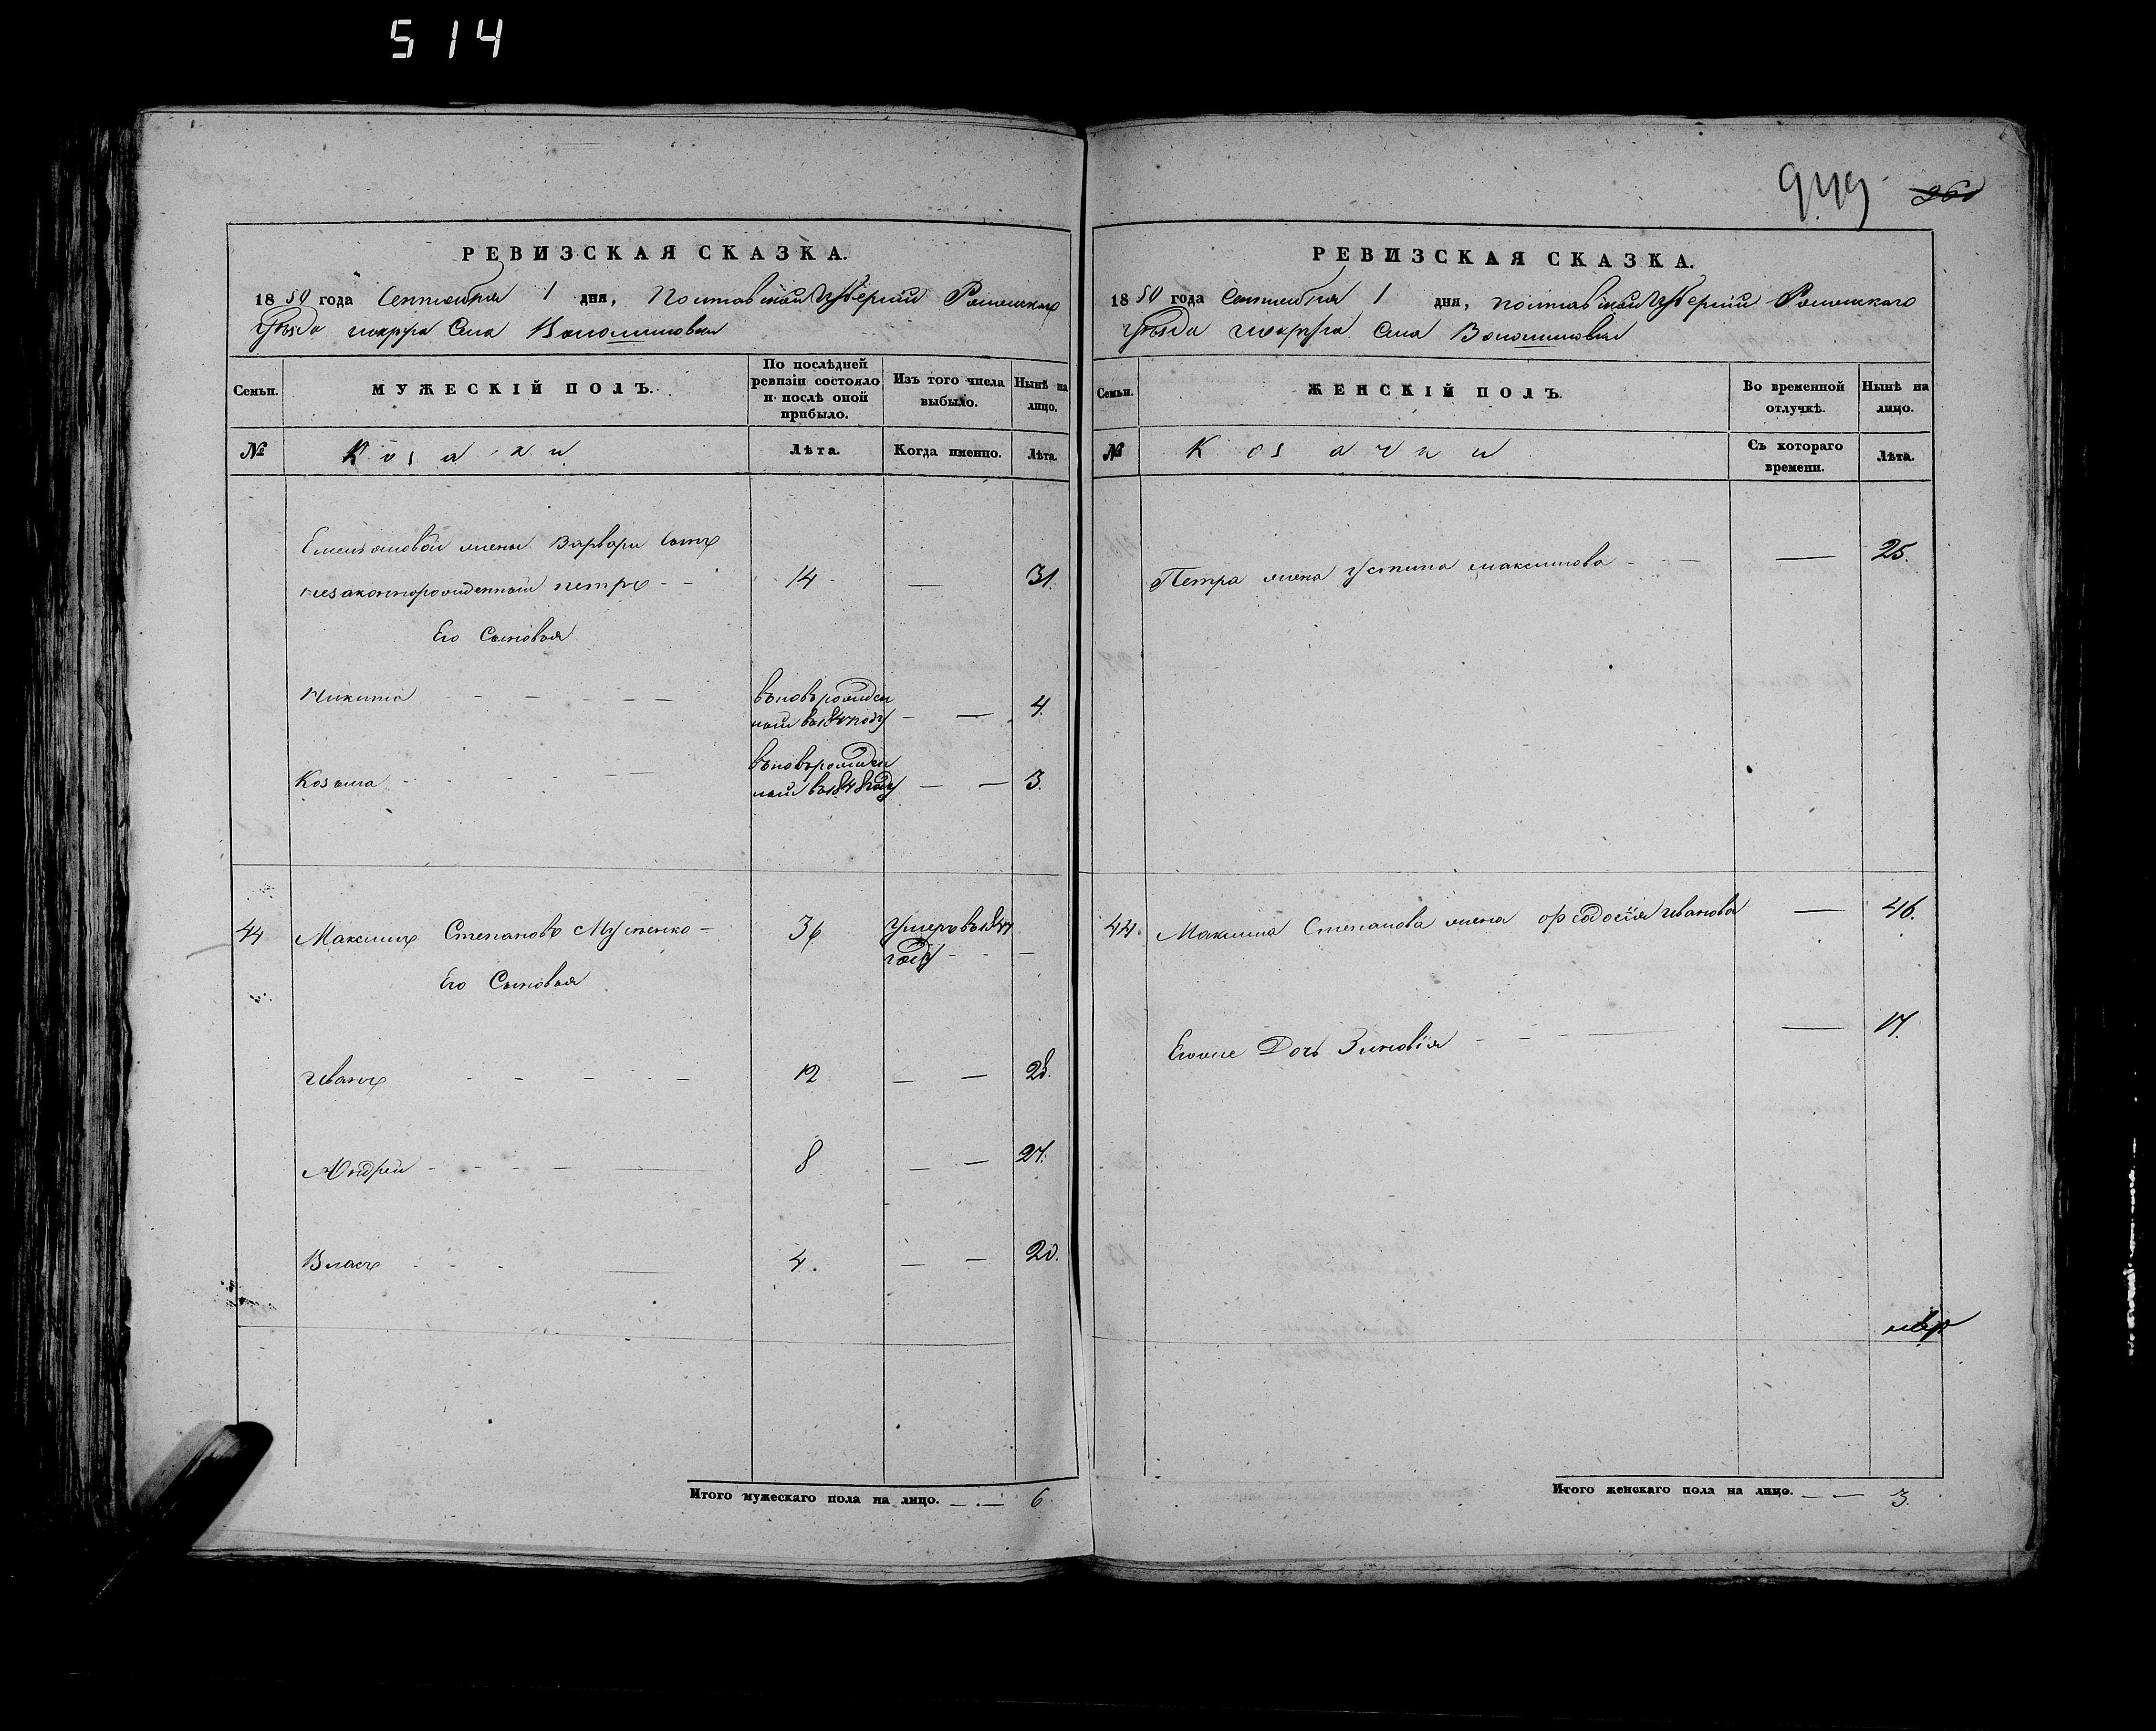 514
949
260
РЕВИЗСКАЯ СКАЗКА.
1850 года Сентября 1 дня, Полтавской Губерніи Роменского
Уезда и округа Села Волошиновки
Семьи.
МУЖЕСКІЙ ПОЛЪ.
По послѣдней ревизіи состояло и послѣ оной прибыло.
Изъ того числа выбыло.
Нынѣ на лицо.
№
Козаки
Лѣта.
Когда именно.
Лѣта.
Емельяновой жены Варвары сынъ
незаконнорожденный петръ - - 14 - — 31.
Его Сыновья
Никита - - - — вновьрожден
ный в 1847 году - — 4.
Козьма - - - - — вновьрожден
ный в 1848 году — — 3.
44 Максимъ Степановъ Мусіенко - 36 Умеръ в 1847
году - - —
Его Сыновья
Иванъ - - - - - 12 — — 28.
Андрей - - - - — 8 — — 24.
Власъ - - - — 4. — — 20.
Итого мужескаго пола на лицо. — — 6.
РЕВИЗСКАЯ СКАЗКА.
1850 года Сентября 1 дня, полтавской Губерніи Роменскаго
Уезда и округа Села Волошиновки
Семьи.
ЖЕНСКІЙ ПОЛЪ.
Во временной отлучкѣ.
Нынѣ на лицо.
№
Козачки
Съ котораго времени.
Лѣта.
Петра жена Устина максимова - - — — 25.
44. Максима Степанова жена Фодосія Иванова — 46.
Егоже Дочь Зиновія - - - — — 17.
Итого женскаго пола на лицо. — — 3.